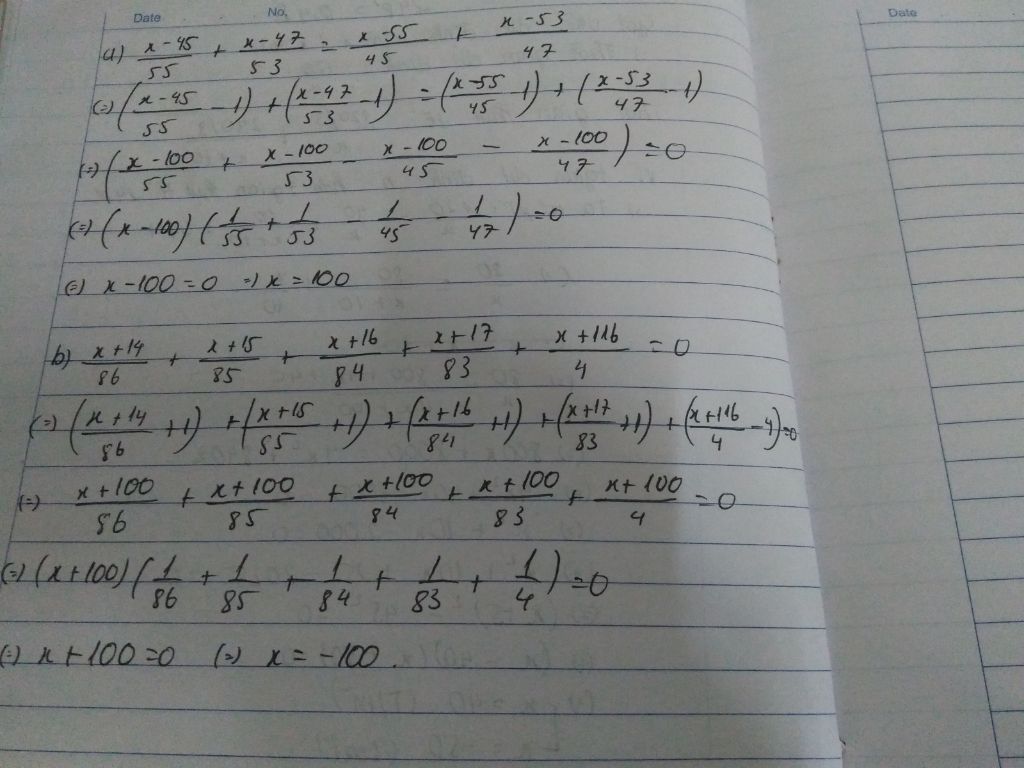 Date No. Date
a) (x-45)/55 + (x-47)/53 = (x-55)/45 + (x-53)/47
(=) ((x-45)/55 - 1) + ((x-47)/53 - 1) = ((x-55)/45 - 1) + ((x-53)/47 - 1)
(=) ((x-100)/55 + (x-100)/53 - (x-100)/45 - (x-100)/47) = 0
(=) (x-100) (1/55 + 1/53 - 1/45 - 1/47) = 0
(=) x-100 = 0 =) x = 100
b) (x+14)/86 + (x+15)/85 + (x+16)/84 + (x+17)/83 + (x+116)/4 = 0
(=) ((x+14)/86 + 1) + ((x+15)/85 + 1) + ((x+16)/84 + 1) + ((x+17)/83 + 1) + ((x+116)/4 - 4) = 0
(=) (x+100)/86 + (x+100)/85 + (x+100)/84 + (x+100)/83 + (x+100)/4 = 0
(=) (x+100) (1/86 + 1/85 + 1/84 + 1/83 + 1/4) = 0
(=) x+100 = 0 (=) x = -100.